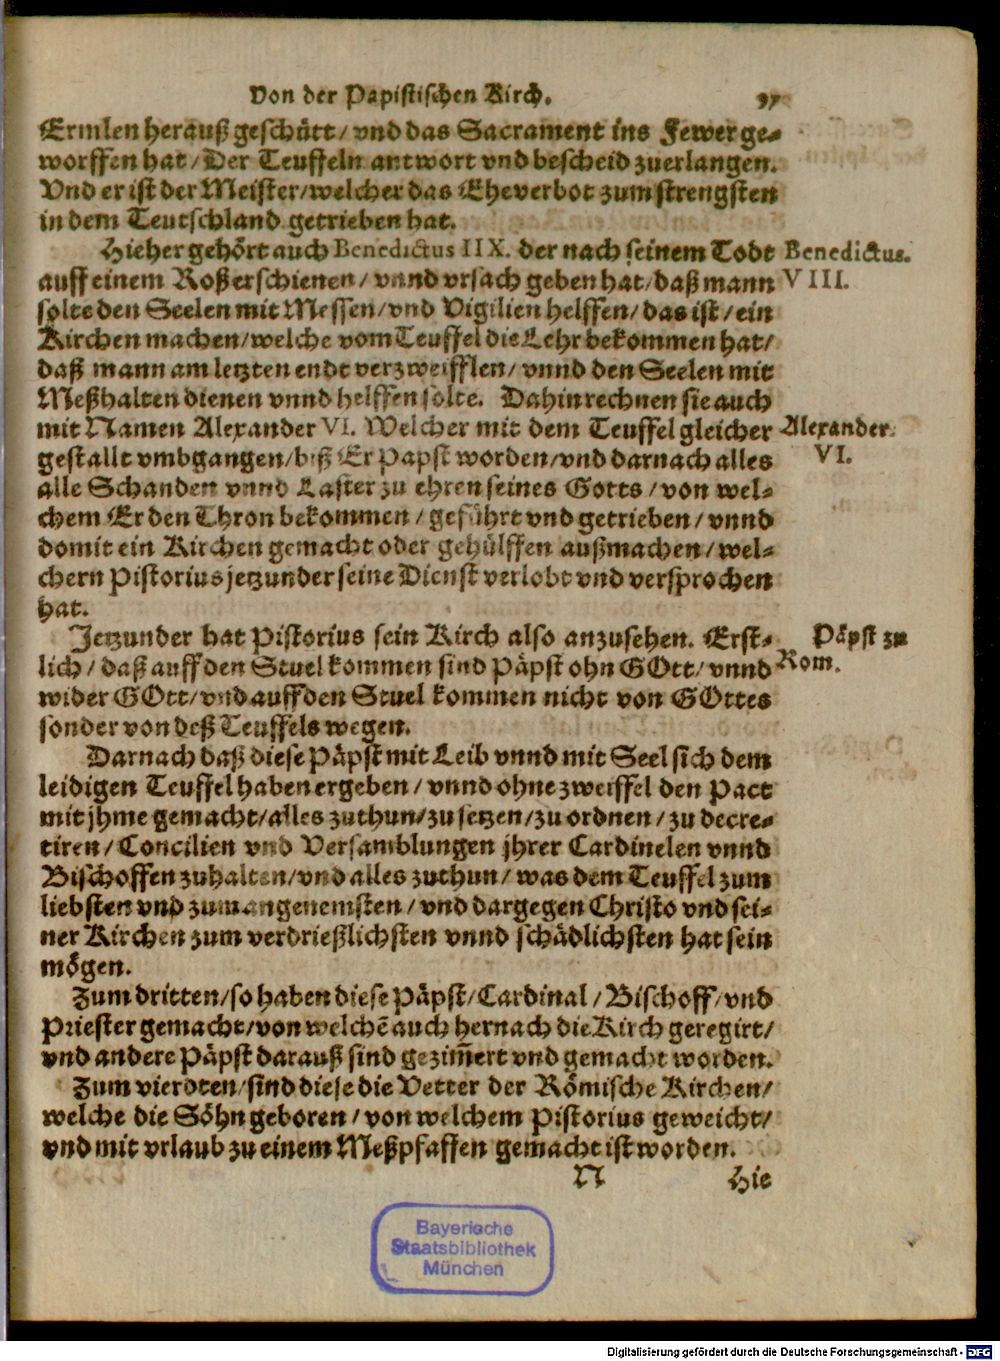 Von der Papistischen Kirch. 97
Ermlen herauß geschütt/ vnd das Sacrament ins Fewer ge-
worffen hat/ Der Teuffeln antwort vnd bescheid zuerlangen.
Vnd er ist der Meister/ welcher das Eheverbot zum strengsten
in dem Teutschland getrieben hat.
Hieher gehört auch Benedictus IIX. der nach seinem Todt
Benedictus.
VIII.
auff einem Roß erschienen/ vnnd vrsach geben hat/ daß mann
solte den Seelen mit Messen/ vnd Vigilien helffen/ das ist/ ein
Kirchen machen/ welche vom Teuffel die Lehr bekommen hat/
daß mann am letzten endt verzweifflen/ vnnd den Seelen mit
Meßhalten dienen vnnd helffen solte. Dahin rechnen sie auch
mit Namen Alexander VI. Welcher mit dem Teuffel gleicher
Alexander
VI.
gestallt vmbgangen/ biß Er Papst worden/ vnd darnach alles
alle Schanden vnnd Laster zu ehren seines Gotts/ von wel-
chem Er den Thron bekommen/ geführt vnd getrieben/ vnnd
domit ein Kirchen gemacht oder gehülffen außmachen/ wel-
chern Pistorius jetzunder seine Dienst verlobt vnd versprochen
hat.
Jetzunder hat Pistorius sein Kirch also anzusehen. Erst-
Päpst zu
Rom.
lich/ daß auff den Stuel kommen sind Päpst ohn GOtt/ vnnd
wider GOtt/ vnd auff den Stuel kommen nicht von GOttes
sonder von deß Teuffels wegen.
Darnach daß diese Päpst mit Leib vnnd mit Seel sich dem
leidigen Teuffel haben ergeben/ vnnd ohne zweiffel den Pact
mit jhme gemacht/ alles zuthun/ zu setzen/ zu ordnen/ zu decre-
tiren/ Concilien vnd Versamblungen jhrer Cardinelen vnnd
Bischoffen zuhalten/ vnd alles zuthun/ was dem Teuffel zum
liebsten vnd zum angenemsten/ vnd dargegen Christo vnd sei-
ner Kirchen zum verdrießlichsten vnnd schädlichsten hat sein
mögen.
Zum dritten/ so haben diese Päpst/ Cardinal/ Bischoff/ vnd
Priester gemacht/ von welchē auch hernach die Kirch geregirt/
vnd andere Päpst darauß sind gezim̄ert vnd gemacht worden.
Zum vierdten/ sind diese die Vetter der Römische Kirchen/
welche die Söhn geboren/ von welchem Pistorius geweicht/
vnd mit vrlaub zu einem Meßpfaffen gemacht ist worden.
N Hie
Bayerische
Staatsbibliothek
München
Digitalisierung gefördert durch die Deutsche Forschungsgemeinschaft - DFG